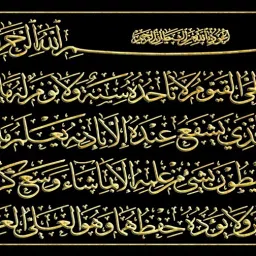 أعوذ بالله من الشيطان الرجيم
الله الرح
لحي القيوم لا تأخذه سنة ولا نوم له ما
لذي يشفع عنده إلا بإذنه يعلم ما
يطون بشيء من علمه إلا بما شاء وسع كر
ولا يؤده حفظهما وهو العلي الع